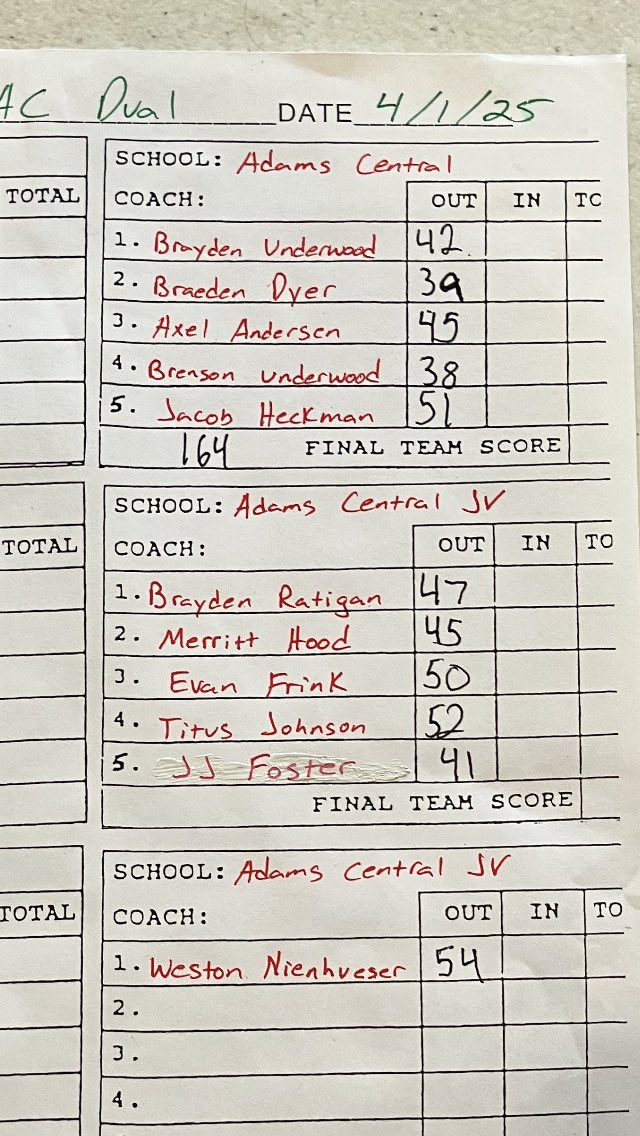 AC Dual DATE 4/1/25
SCHOOL: Adams Central
TOTAL COACH: OUT IN TO
1. Brayden Underwood 42
2. Braeden Dyer 39
3. Axel Andersen 45
4. Brenson Underwood 38
5. Jacob Heckman 51
164 FINAL TEAM SCORE
SCHOOL: Adams Central JV
TOTAL COACH: OUT IN TO
1. Brayden Ratigan 47
2. Merritt Hood 45
3. Evan Frink 50
4. Titus Johnson 52
5. JJ Foster 41
FINAL TEAM SCORE
SCHOOL: Adams Central JV
TOTAL COACH: OUT IN TO
1. Weston Nienhueser 54
2.
3.
4.